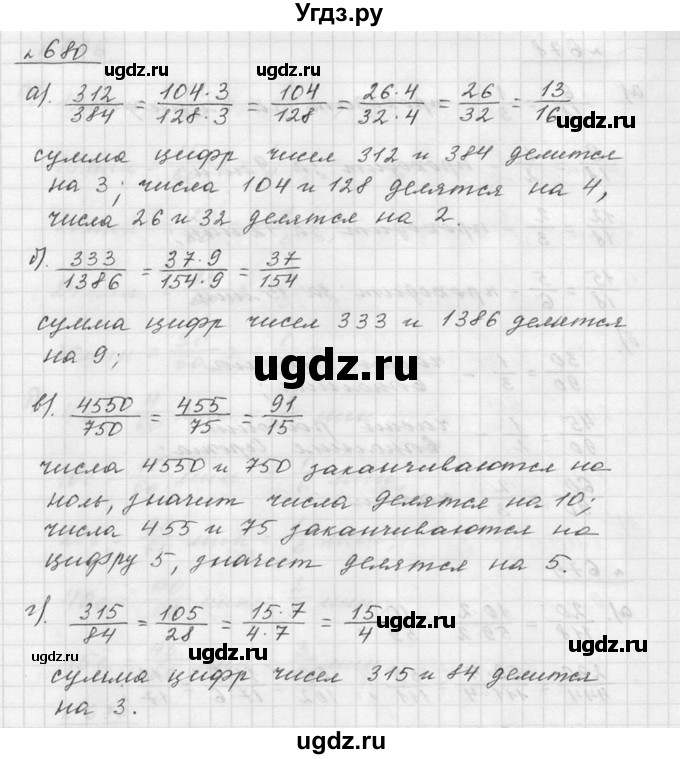 Угдз.ру
№ 680
ugdz.ru ugdz.ru
а). 312/384 = 104·3/128·3 = 104/128 = 26·4/32·4 = 26/32 = 13/16
ugdz.ru
сумма цифр чисел 312 и 384 делится
на 3; числа 104 и 128 делятся на 4,
числа 26 и 32 делятся на 2.
ugdz.ru
б). 333/1386 = 37·9/154·9 = 37/154
сумма цифр чисел 333 и 1386 делится
на 9;
ugdz.ru
в). 4550/750 = 455/75 = 91/15
ugdz.ru
числа 4550 и 750 заканчиваются на
ноль, значит числа делятся на 10;
числа 455 и 75 заканчиваются на
цифру 5, значит делятся на 5.
ugdz.ru
г). 315/84 = 105/28 = 15·7/4·7 = 15/4
ugdz.ru ugdz.ru
сумма цифр чисел 315 и 84 делится
на 3.
ugdz.ru
ugdz.ru